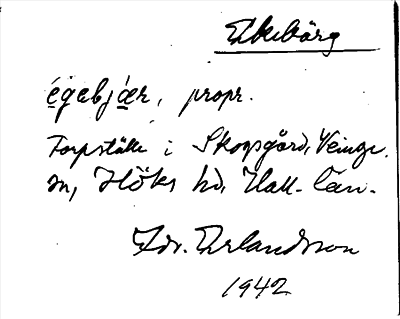 Ekeberg
égebjær, propr.
Torpställe i Skogsgård, Veinge
sn, Höks hd, Hall. län.
Edv. Erlandsson
1942